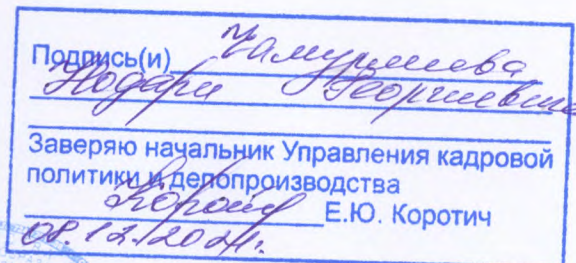 Подпись(и) Чамуршева
Нодари Георгиевича
Заверяю начальник Управления кадровой
политики и делопроизводства
Е.Ю. Коротич
08.12.2021г.